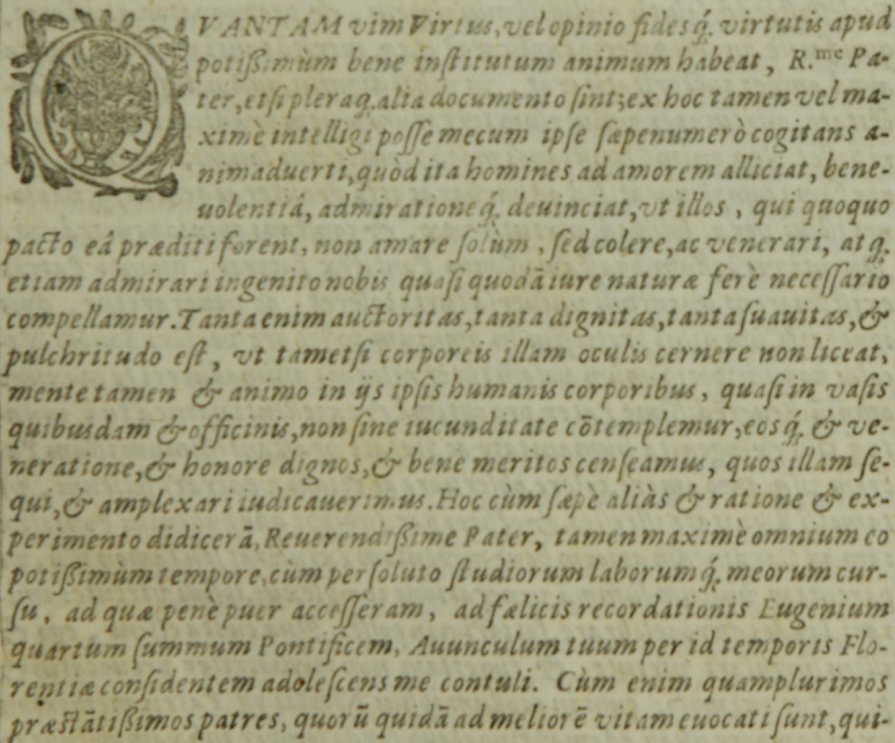 QVANTAM vim Virtus, vel opinio fidesq́; virtutis apud
potißimùm bene inſtitutum animum habeat, R.mc Pa-
ter, etſi pleraq; alia documento ſint; ex hoc tamen vel ma-
ximè intelligi poſſe mecum ipſe ſæpenumerò cogitans a-
nimaduerti, quòd ita homines ad amorem alliciat, bene-
uolentiâ, admirationeq́; deuinciat, vt illos, qui quoquo
pacto eâ præditi forent, non amare ſolùm, ſed colere, ac venerari, atq;
etiam admirari ingenito nobis quaſi quodā iure naturæ ferè neceſſario
compellamur. Tanta enim auctoritas, tanta dignitas, tanta ſuauitas, &
pulchritudo eſt, vt tametſi corporeis illam oculis cernere non liceat,
mente tamen & animo in ijs ipſis humanis corporibus, quaſi in vaſis
quibusdam & officinis, non ſine iucunditate cōtemplemur, eosq́; & ve-
neratione, & honore dignos, & bene meritos cenſeamus, quos illam ſe-
qui, & amplexari iudicauerimus. Hoc cùm ſæpè aliàs & ratione & ex-
perimento didicerā, Reuerendißime Pater, tamen maximè omnium eo
potißimùm tempore, cùm perſoluto ſtudiorum laborumq́; meorum cur-
ſu, ad quæ penè puer acceſſeram, ad fælicis recordationis Eugenium
quartum ſummum Pontificem, Auunculum tuum per id temporis Flo-
rentiæ conſidentem adoleſcens me contuli. Cùm enim quamplurimos
præſtātißimos patres, quorū quidā ad meliorē vitam euocati ſunt, qui-